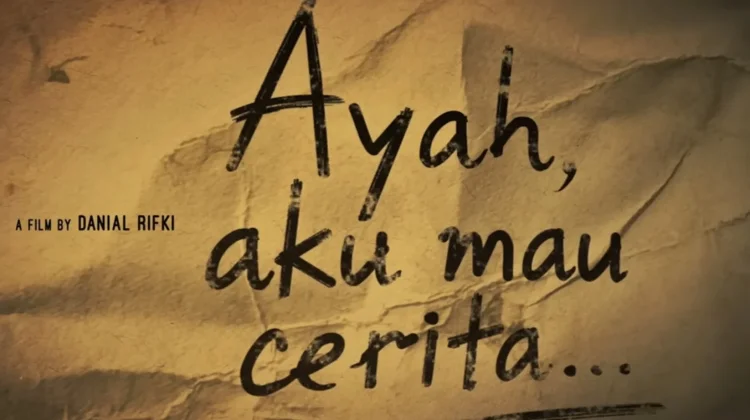 Ayah,
aku mau
cerita...
A FILM BY DANIAL RIFKI